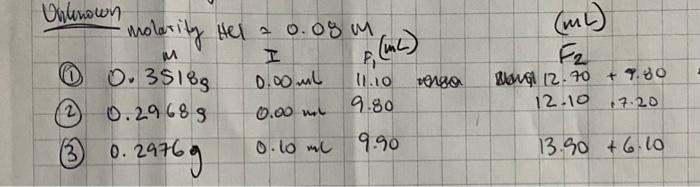 Unknown
molarity HCl = 0.08 M (mL)
M I F₁ (mL) F₂
① 0.3518g 0.00 mL 11.10 12.70 + 9.80
② 0.2968g 0.00 mL 9.80 12.10 + 7.20
③ 0.2976g 0.10 mL 9.90 13.90 + 6.10